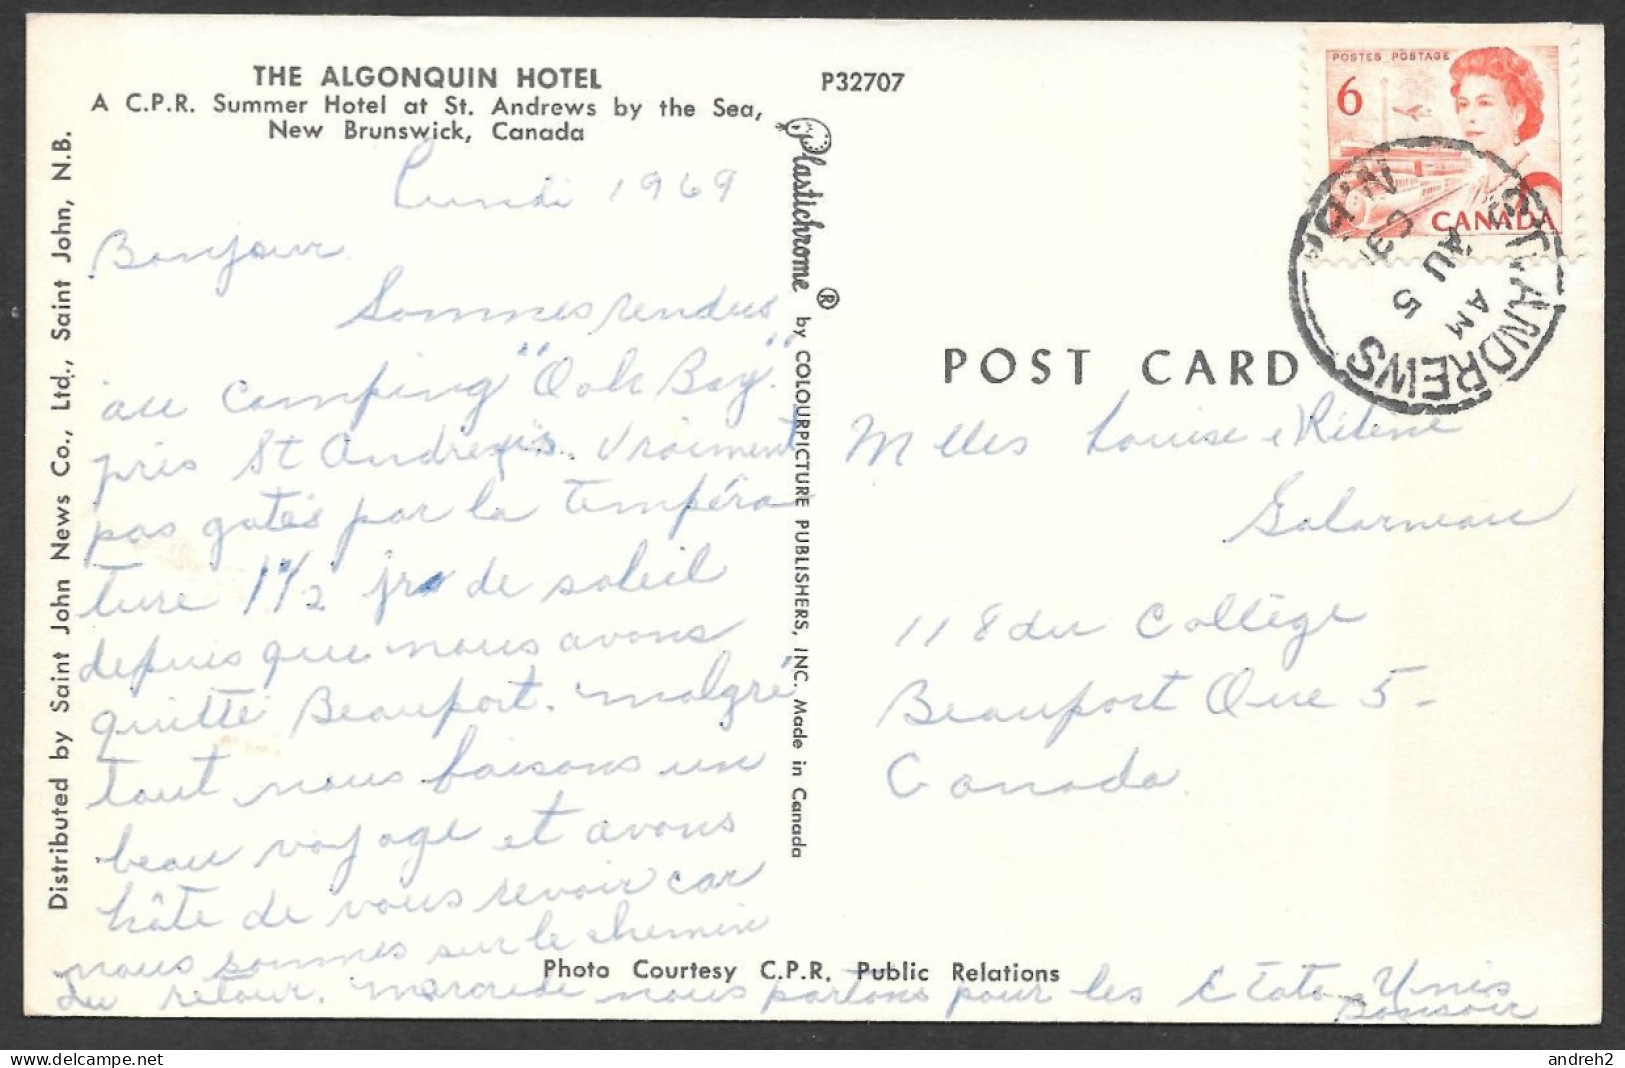 THE ALGONQUIN HOTEL
A C.P.R. Summer Hotel at St. Andrews by the Sea,
New Brunswick, Canada
P32707
Distributed by Saint John News Co., Ltd., Saint John, N.B.
Plastichrome ® by COLOURPICTURE PUBLISHERS, INC. Made in Canada
POSTES POSTAGE
6
CANADA
ST. ANDREWS
N.B.
AM
AU 5
POST CARD
Lundi 1969
Bonjour
Sommes rendus
au camping "Oak Bay"
près St Andrews. Vraiment
pas gatés par la tempéra
ture 1 1/2 jrs de soleil
depuis que nous avons
quitté Beauport. malgré
tout nous faisons un
beau voyage et avons
hâte de vous revoir car
nous sommes sur le chemin
du retour. mercredi nous partons pour les États Unis
Bonsoir
Melles Louise &
Galarneau
118 du Collège
Beauport Que 5-
Canada.
Photo Courtesy C.P.R. Public Relations
andreh2